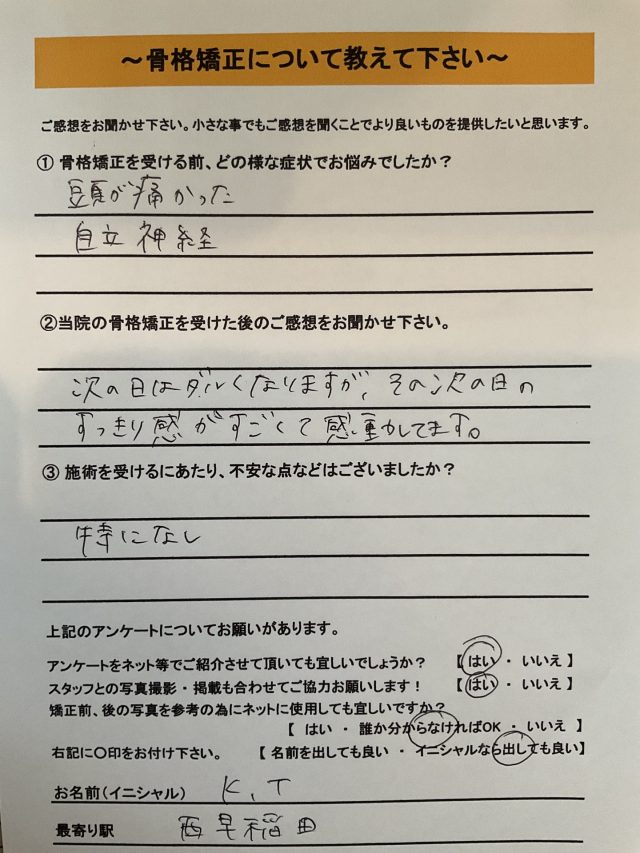 ～骨格矯正について教えて下さい～
ご感想をお聞かせ下さい。小さな事でもご感想を聞くことでより良いものを提供したいと思います。
① 骨格矯正を受ける前、どの様な症状でお悩みでしたか？
頭が痛かった
自立神経
②当院の骨格矯正を受けた後のご感想をお聞かせ下さい。
次の日はダルくなりますが、その次の日の
すっきり感がすごくて感動してます。
③ 施術を受けるにあたり、不安な点などはございましたか？
特になし
上記のアンケートについてお願いがあります。
アンケートをネット等でご紹介させて頂いても宜しいでしょうか？ 【 はい ・ いいえ 】
スタッフとの写真撮影・掲載も合わせてご協力お願いします！ 【 はい ・ いいえ 】
矯正前、後の写真を参考の為にネットに使用しても宜しいですか？
【 はい ・ 誰か分からなければOK ・ いいえ 】
右記に〇印をお付け下さい。 【 名前を出しても良い ・ イニシャルなら出しても良い】
お名前（イニシャル） K.T
最寄り駅 西早稲田